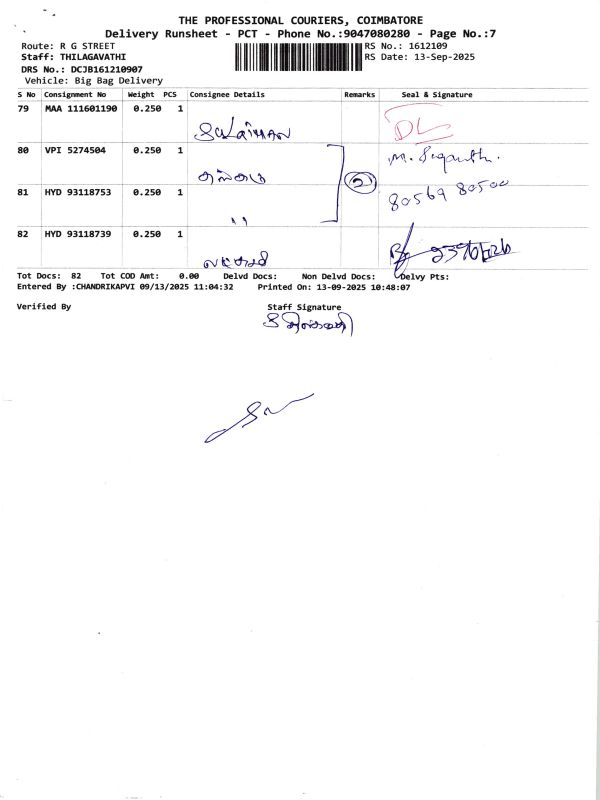 THE PROFESSIONAL COURIERS, COIMBATORE
Delivery Runsheet - PCT - Phone No.:9047080280 - Page No.:7
Route: R G STREET
RS No.: 1612109
Staff: THILAGAVATHI
RS Date: 13-Sep-2025
DRS No.: DCJB161210907
Vehicle: Big Bag Delivery
S No Consignment No Weight PCS Consignee Details Remarks Seal & Signature
79 MAA 111601190 0.250 1 DL
80 VPI 5274504 0.250 1
81 HYD 93118753 0.250 1 " 2 80569 80500
82 HYD 93118739 0.250 1
Tot Docs: 82 Tot COD Amt: 0.00 Delvd Docs: Non Delvd Docs: Delvy Pts:
Entered By :CHANDRIKAPVI 09/13/2025 11:04:32 Printed On: 13-09-2025 10:48:07
Verified By Staff Signature